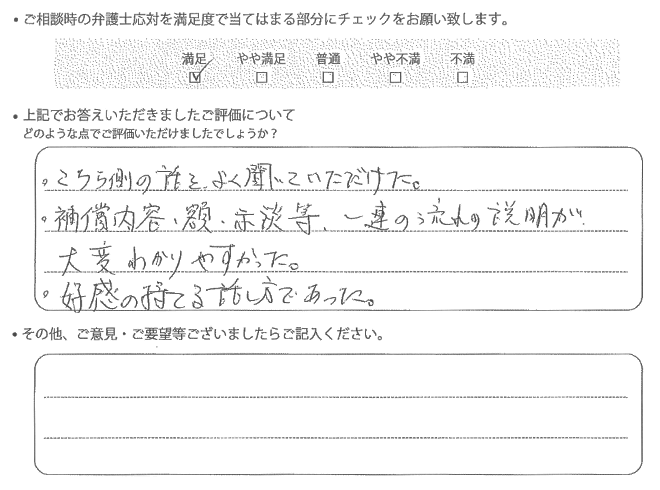 ・ご相談時の弁護士応対を満足度で当てはまる部分にチェックをお願い致します。
満足 やや満足 普通 やや不満 不満
☑ □ □ □ □
・上記でお答えいただきましたご評価について
どのような点でご評価いただけましたでしょうか？
。こちら側の話を、よく聞いていただけた。
。補償内容、額、示談等、一連の流れの説明が
大変わかりやすかった。
。好感の持てる話し方であった。
・その他、ご意見・ご要望等ございましたらご記入ください。